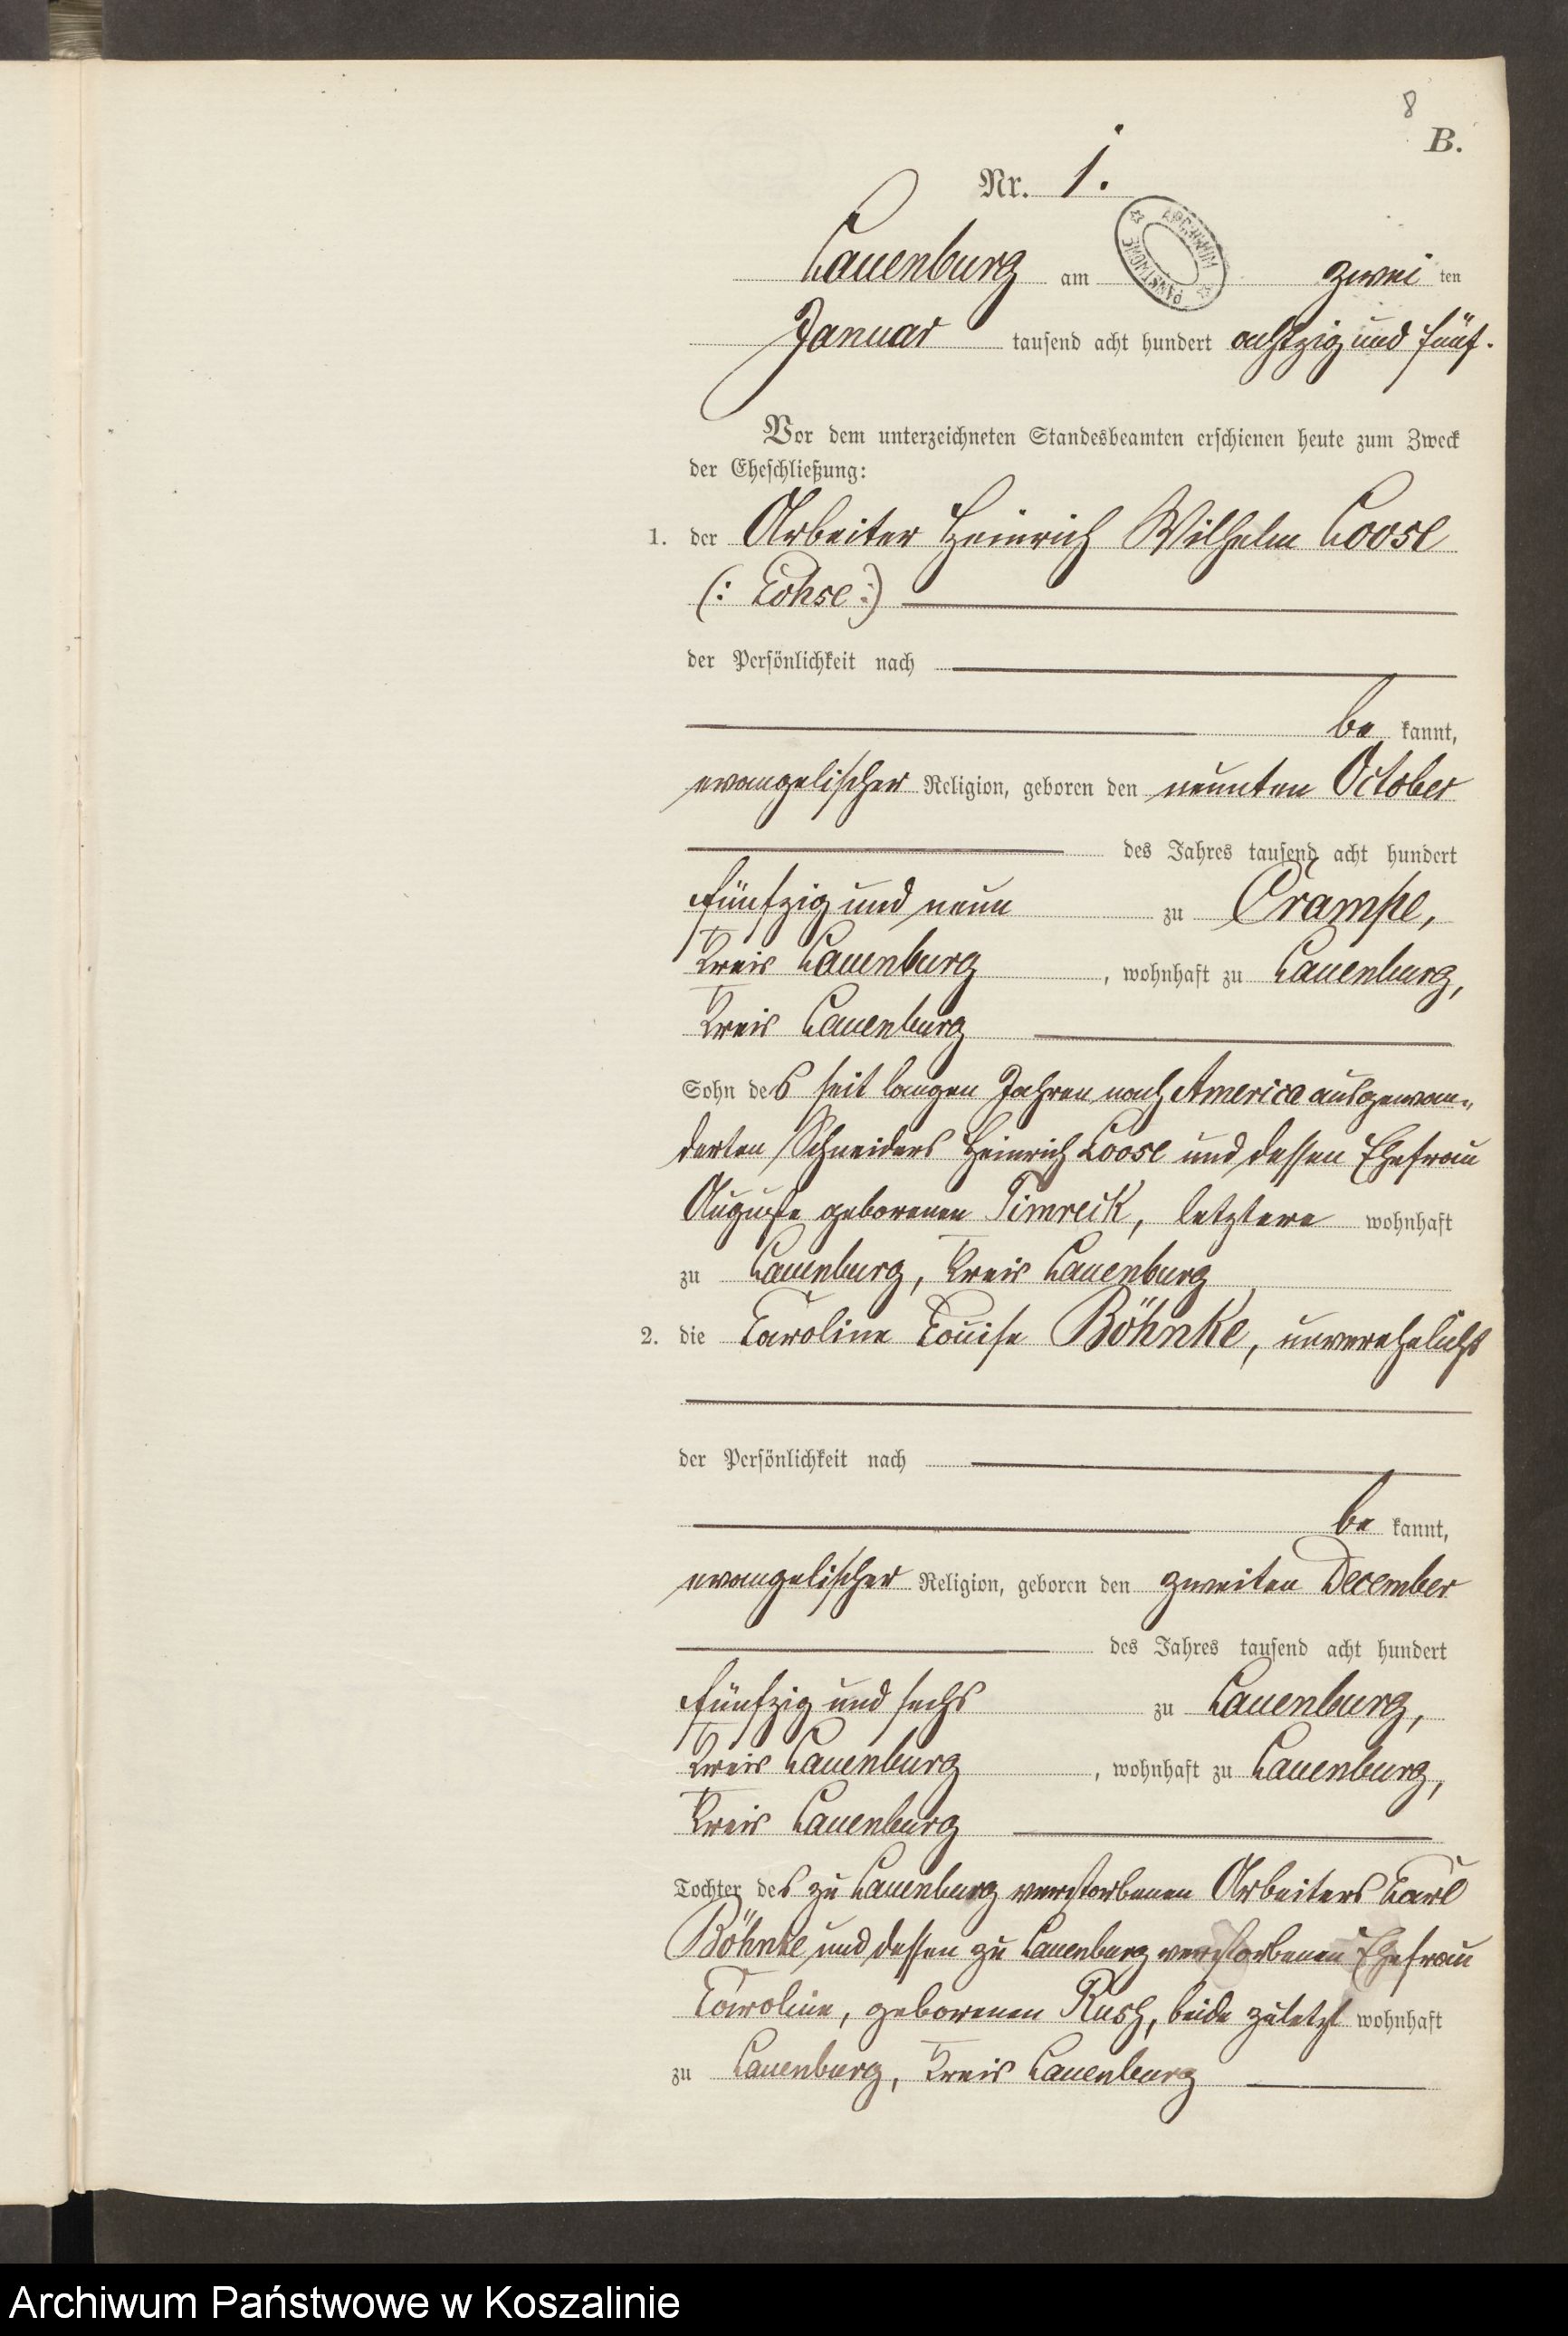 8
B.
Nr. 1.
ARCHIWUM PAŃSTWOWE
Lauenburg am zwei ten
Januar tausend acht hundert achtzig und fünf.
Vor dem unterzeichneten Standesbeamten erschienen heute zum Zweck
der Eheschließung:
1. der Arbeiter Heinrich Wilhelm Loose
(: Lohse :)
der Persönlichkeit nach
be kannt,
evangelischer Religion, geboren den neunten October
des Jahres tausend acht hundert
fünfzig und neun zu Crampe,
Kreis Lauenburg, wohnhaft zu Lauenburg,
Kreis Lauenburg
Sohn des seit langen Jahren nach America ausgewan-
derten Schneiders Heinrich Loose und dessen Ehefrau
Auguste geborenen Timreck, letztere wohnhaft
zu Lauenburg, Kreis Lauenburg
2. die Caroline Louise Böhnke, unverehelicht
der Persönlichkeit nach
be kannt,
evangelischer Religion, geboren den zweiten December
des Jahres tausend acht hundert
fünfzig und sechs zu Lauenburg,
Kreis Lauenburg, wohnhaft zu Lauenburg,
Kreis Lauenburg
Tochter des zu Lauenburg verstorbenen Arbeiters Carl
Böhnke und dessen zu Lauenburg verstorbenen Ehefrau
Caroline, geborenen Rusch, beide zuletzt wohnhaft
zu Lauenburg, Kreis Lauenburg
Archiwum Państwowe w Koszalinie